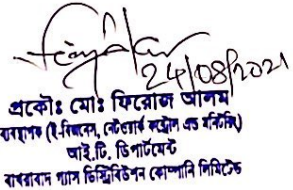 24/08/2021
প্রকৌঃ মোঃ ফিরোজ আলম
ব্যবস্থাপক (ই-বিজনেস, নেটওয়ার্ক কন্ট্রোল এন্ড মনিটরিং)
আই.টি. ডিপার্টমেন্ট
বাখরাবাদ গ্যাস ডিস্ট্রিবিউশন কোম্পানি লিমিটেড